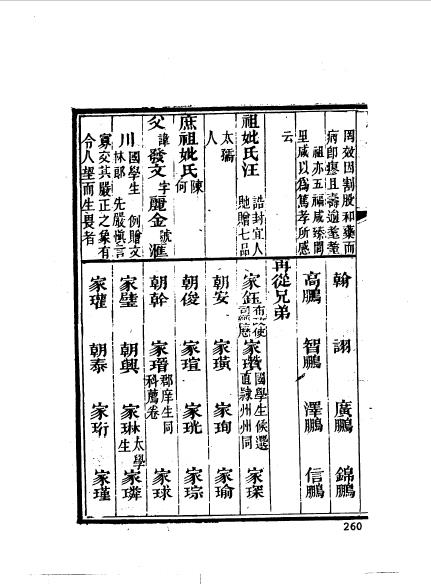 罔效因割股和藥而
病卽瘳且壽逾耄耋
祖亦五福咸臻閭
里咸以爲篤孝所感
云
祖妣氏汪 誥封宜人
貤贈七品
太孺
人
庶祖妣氏陳
何
父 諱發文字麗金號滙
川 國學生 例贈文
林郎 先嚴愼言
寡交其嚴正之象有
令人望而生畏者
翰 詡 廣鵬 錦鵬
高鵬 智鵬 澤鵬 信鵬
再從兄弟
家鈺 布政使司經歷 家瓚 國學生候選直隸州州同 家琛
朝安 家璜 家珣 家瑜
朝俊 家瑄 家珖 家琮
朝幹 家瑨 郡庠生同科薦卷 家球
家璧 朝興 家琳 太學生 家璘
家瓘 朝泰 家珩 家瑾
260